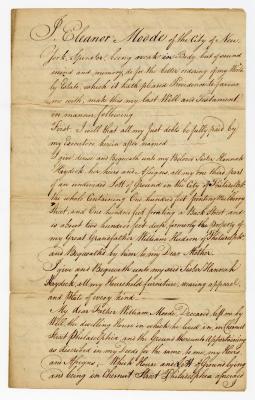 I, Eleanor Moode of the City of New
York, Spinster, being weak in Body, but of sound
mind and memory, do for the better ordering of my Worldly
Estate, which it hath pleased Providence to favour
me with, make this my last Will and Testament
in manner following
First. I will that all my just debts be fully paid by
my Executors herein after named
I give devise and Bequeath unto my Beloved Sister Hannah
Haydock her heirs and Assigns all my one third part
of an undivided Lott of Ground in the City of Philadelphia
the whole Containing One hundred feet fronting Mulberry
Street, and One hundred feet fronting a Back Street and
is about two hundred feet deep, formerly the property of
my Great Grandfather William Hudson of Philadelphia
and Bequeathed by him to my Dear Mother.
I give and Bequeath unto my said Sister Hannah
Haydock, all my Household furniture, wearing apparel
and Plate of every kind
My dear Father William Moode Deceased left me by
Will, the dwelling House in which he lived in, in Chesnut
Street Philadelphia, and the Ground thereunto Appertaining
as described in my Deeds for the same to me, my Heirs,
and Assigns, Which House and Lott of Ground lying
and being in Chesnut Street Philadelphia aforesaid